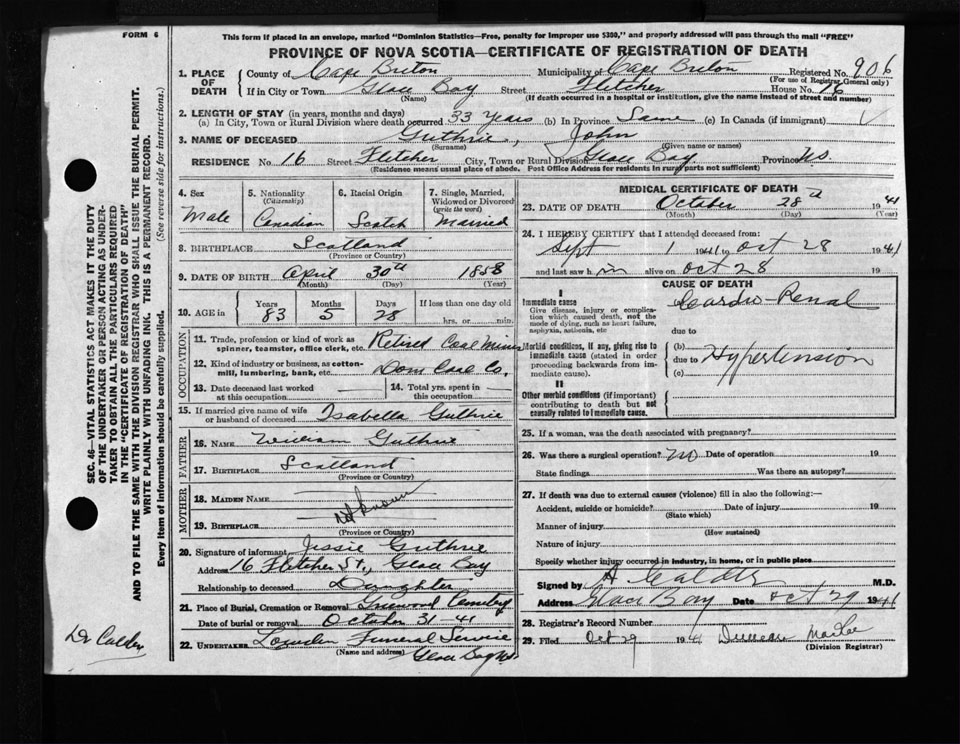 FORM 6
This form if placed in an envelope, marked "Dominion Statistics—Free, penalty for improper use $300," and properly addressed will pass through the mail "FREE"
PROVINCE OF NOVA SCOTIA—CERTIFICATE OF REGISTRATION OF DEATH
1. PLACE OF DEATH
County of Cape Breton Municipality of Cape Breton Registered No. 906
(For use of Registrar General only)
If in City or Town Glace Bay Street Fletcher House No. 16
(Name) (If death occurred in a hospital or institution, give the name instead of street and number)
2. LENGTH OF STAY (in years, months and days)
(a) In City, Town or Rural Division where death occurred 33 Years (b) In Province Same (c) In Canada (if immigrant)
3. NAME OF DECEASED Guthrie, John
(Surname) (Given name or names)
RESIDENCE No. 16 Street Fletcher City, Town or Rural Division Glace Bay Province NS.
(Residence means usual place of abode. Post Office Address for residents in rural parts not sufficient)
4. Sex
Male
5. Nationality
(Citizenship)
Canadian
6. Racial Origin
Scotch
7. Single, Married, Widowed or Divorced
(write the word)
Married
8. BIRTHPLACE Scotland
(Province or Country)
9. DATE OF BIRTH April 30th 1858
(Month) (Day) (Year)
10. AGE in
Years Months Days If less than one day old
83 5 28 hrs. or min.
OCCUPATION
11. Trade, profession or kind of work as spinner, teamster, office clerk, etc. Retired Coal Miner
12. Kind of industry or business, as cotton-mill, lumbering, bank, etc. Dom Coal Co.
13. Date deceased last worked at this occupation
14. Total yrs. spent in this occupation
15. If married give name of wife or husband of deceased Isabella Guthrie
FATHER
16. NAME William Guthrie
17. BIRTHPLACE Scotland
(Province or Country)
MOTHER
18. MAIDEN NAME
Not known
19. BIRTHPLACE
(Province or Country)
20. Signature of informant Jessie Guthrie
Address 16 Fletcher St., Glace Bay
Relationship to deceased Daughter
21. Place of Burial, Cremation or Removal Greenwood Cemetery
Date of burial or removal October 31-41
22. UNDERTAKER Funeral Service
(Name and address) Glace Bay NS
MEDICAL CERTIFICATE OF DEATH
23. DATE OF DEATH October 28th 1941
(Month) (Day) (Year)
24. I HEREBY CERTIFY that I attended deceased from:
Sept 1 1941 to Oct 28 1941
and last saw him alive on Oct 28 19
CAUSE OF DEATH
I
Immediate cause
Give disease, injury or complication which caused death, not the mode of dying, such as heart failure, asphyxia, asthenia, etc
(a) Cardio-Renal
due to
Morbid conditions, if any, giving rise to immediate cause (stated in order proceeding backwards from immediate cause).
(b)
due to Hypertension
(c)
II
Other morbid conditions (if important) contributing to death but not causally related to immediate cause.
25. If a woman, was the death associated with pregnancy?
26. Was there a surgical operation? No Date of operation 19
State findings Was there an autopsy?
27. If death was due to external causes (violence) fill in also the following:—
Accident, suicide or homicide? Date of injury 19
(State which)
Manner of injury
(How sustained)
Nature of injury
Specify whether injury occurred in industry, in home, or in public place
Signed by A Calder M.D.
Address Glace Bay Date Oct 29 1941
28. Registrar's Record Number
29. Filed Oct 29 1941 Duncan
(Division Registrar)
SEC. 46—VITAL STATISTICS ACT MAKES IT THE DUTY
OF THE UNDERTAKER OR PERSON ACTING AS UNDER-
TAKER TO OBTAIN ALL THE PARTICULARS REQUIRED
IN THE "CERTIFICATE OF REGISTRATION OF DEATH"
AND TO FILE THE SAME WITH THE DIVISION REGISTRAR WHO SHALL ISSUE THE BURIAL PERMIT.
WRITE PLAINLY WITH UNFADING INK. THIS IS A PERMANENT RECORD.
Every item of information should be carefully supplied. (See reverse side for instructions.)
Dr Calder